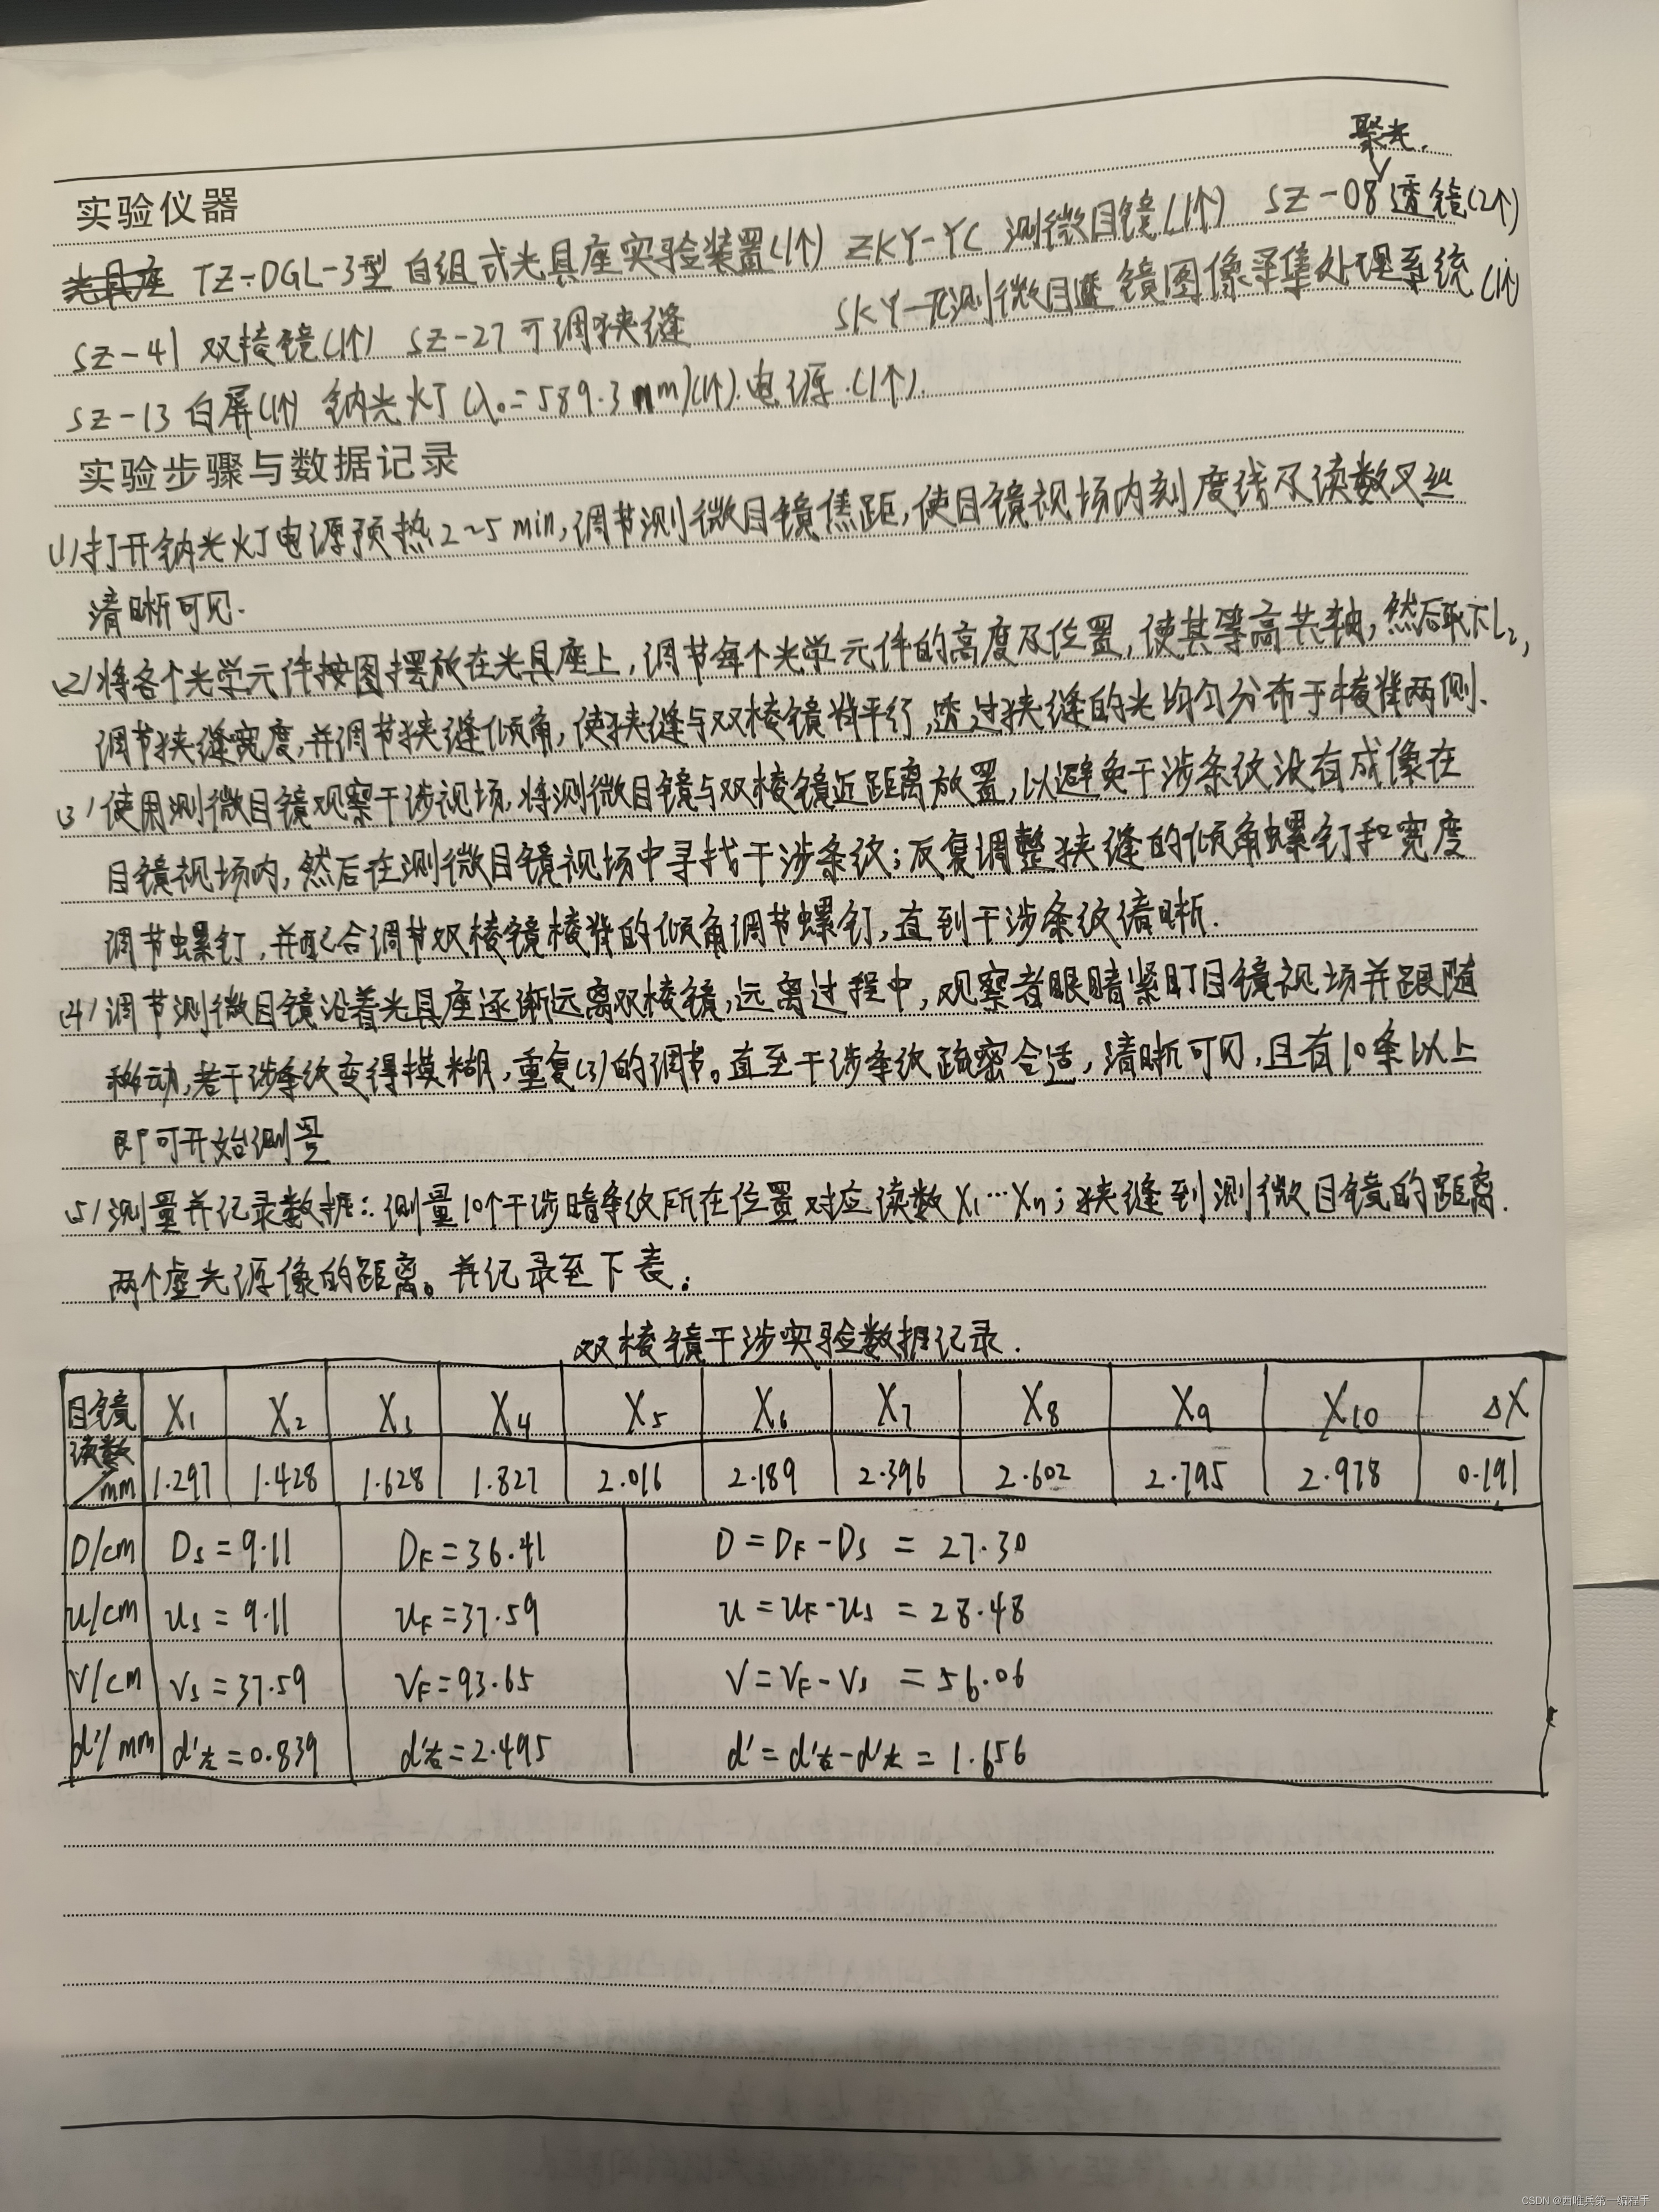 聚光.
实验仪器
TZ-DGL-3型 自组式光具座实验装置(1个) ZKY-YC 测微目镜(1个) SZ-08透镜(2个)
SZ-41 双棱镜(1个) SZ-27可调狭缝 SKY- 测微目镜图像采集处理系统(1个)
SZ-13 白屏(1个) 钠光灯(λ₀=589.3nm)(1个).电源.(1个).
实验步骤与数据记录
(1)打开钠光灯电源预热2~5min,调节测微目镜焦距,使目镜视场内刻度线及读数叉丝
清晰可见.
(2)将各个光学元件按图摆放在光具座上,调节每个光学元件的高度及位置,使其等高共轴,然后取下L₂,
调节狭缝宽度,并调节狭缝倾角,使狭缝与双棱镜脊平行,透过狭缝的光均匀分布于棱脊两侧.
(3)使用测微目镜观察干涉视场,将测微目镜与双棱镜近距离放置,以避免干涉条纹没有成像在
目镜视场内,然后在测微目镜视场中寻找干涉条纹;反复调整狭缝的倾角螺钉和宽度
调节螺钉,并配合调节双棱镜棱脊的倾角调节螺钉,直到干涉条纹清晰.
(4)调节测微目镜沿着光具座逐渐远离双棱镜,远离过程中,观察者眼睛紧盯目镜视场并跟随
移动,若干涉条纹变得模糊,重复(3)的调节。直至干涉条纹疏密合适,清晰可见,且有10条以上
即可开始测量
(5)测量并记录数据:测量10个干涉暗条纹所在位置对应读数X₁…Xₙ;狭缝到测微目镜的距离.
两个虚光源像的距离。并记录至下表:
双棱镜干涉实验数据记录.
目镜读数/mm X₁ X₂ X₃ X₄ X₅ X₆ X₇ X₈ X₉ X₁₀ ΔX
1.297 1.428 1.628 1.827 2.016 2.189 2.396 2.602 2.795 2.978 0.191
D/cm Ds=9.11 DF=36.41 D=DF-Ds=27.30
u/cm us=9.11 uF=37.59 u=uF-us=28.48
V/cm Vs=37.59 VF=93.65 V=VF-Vs=56.06
d'/mm d'左=0.839 d'右=2.495 d'=d'右-d'左=1.656
CSDN @西唯兵第一编程手